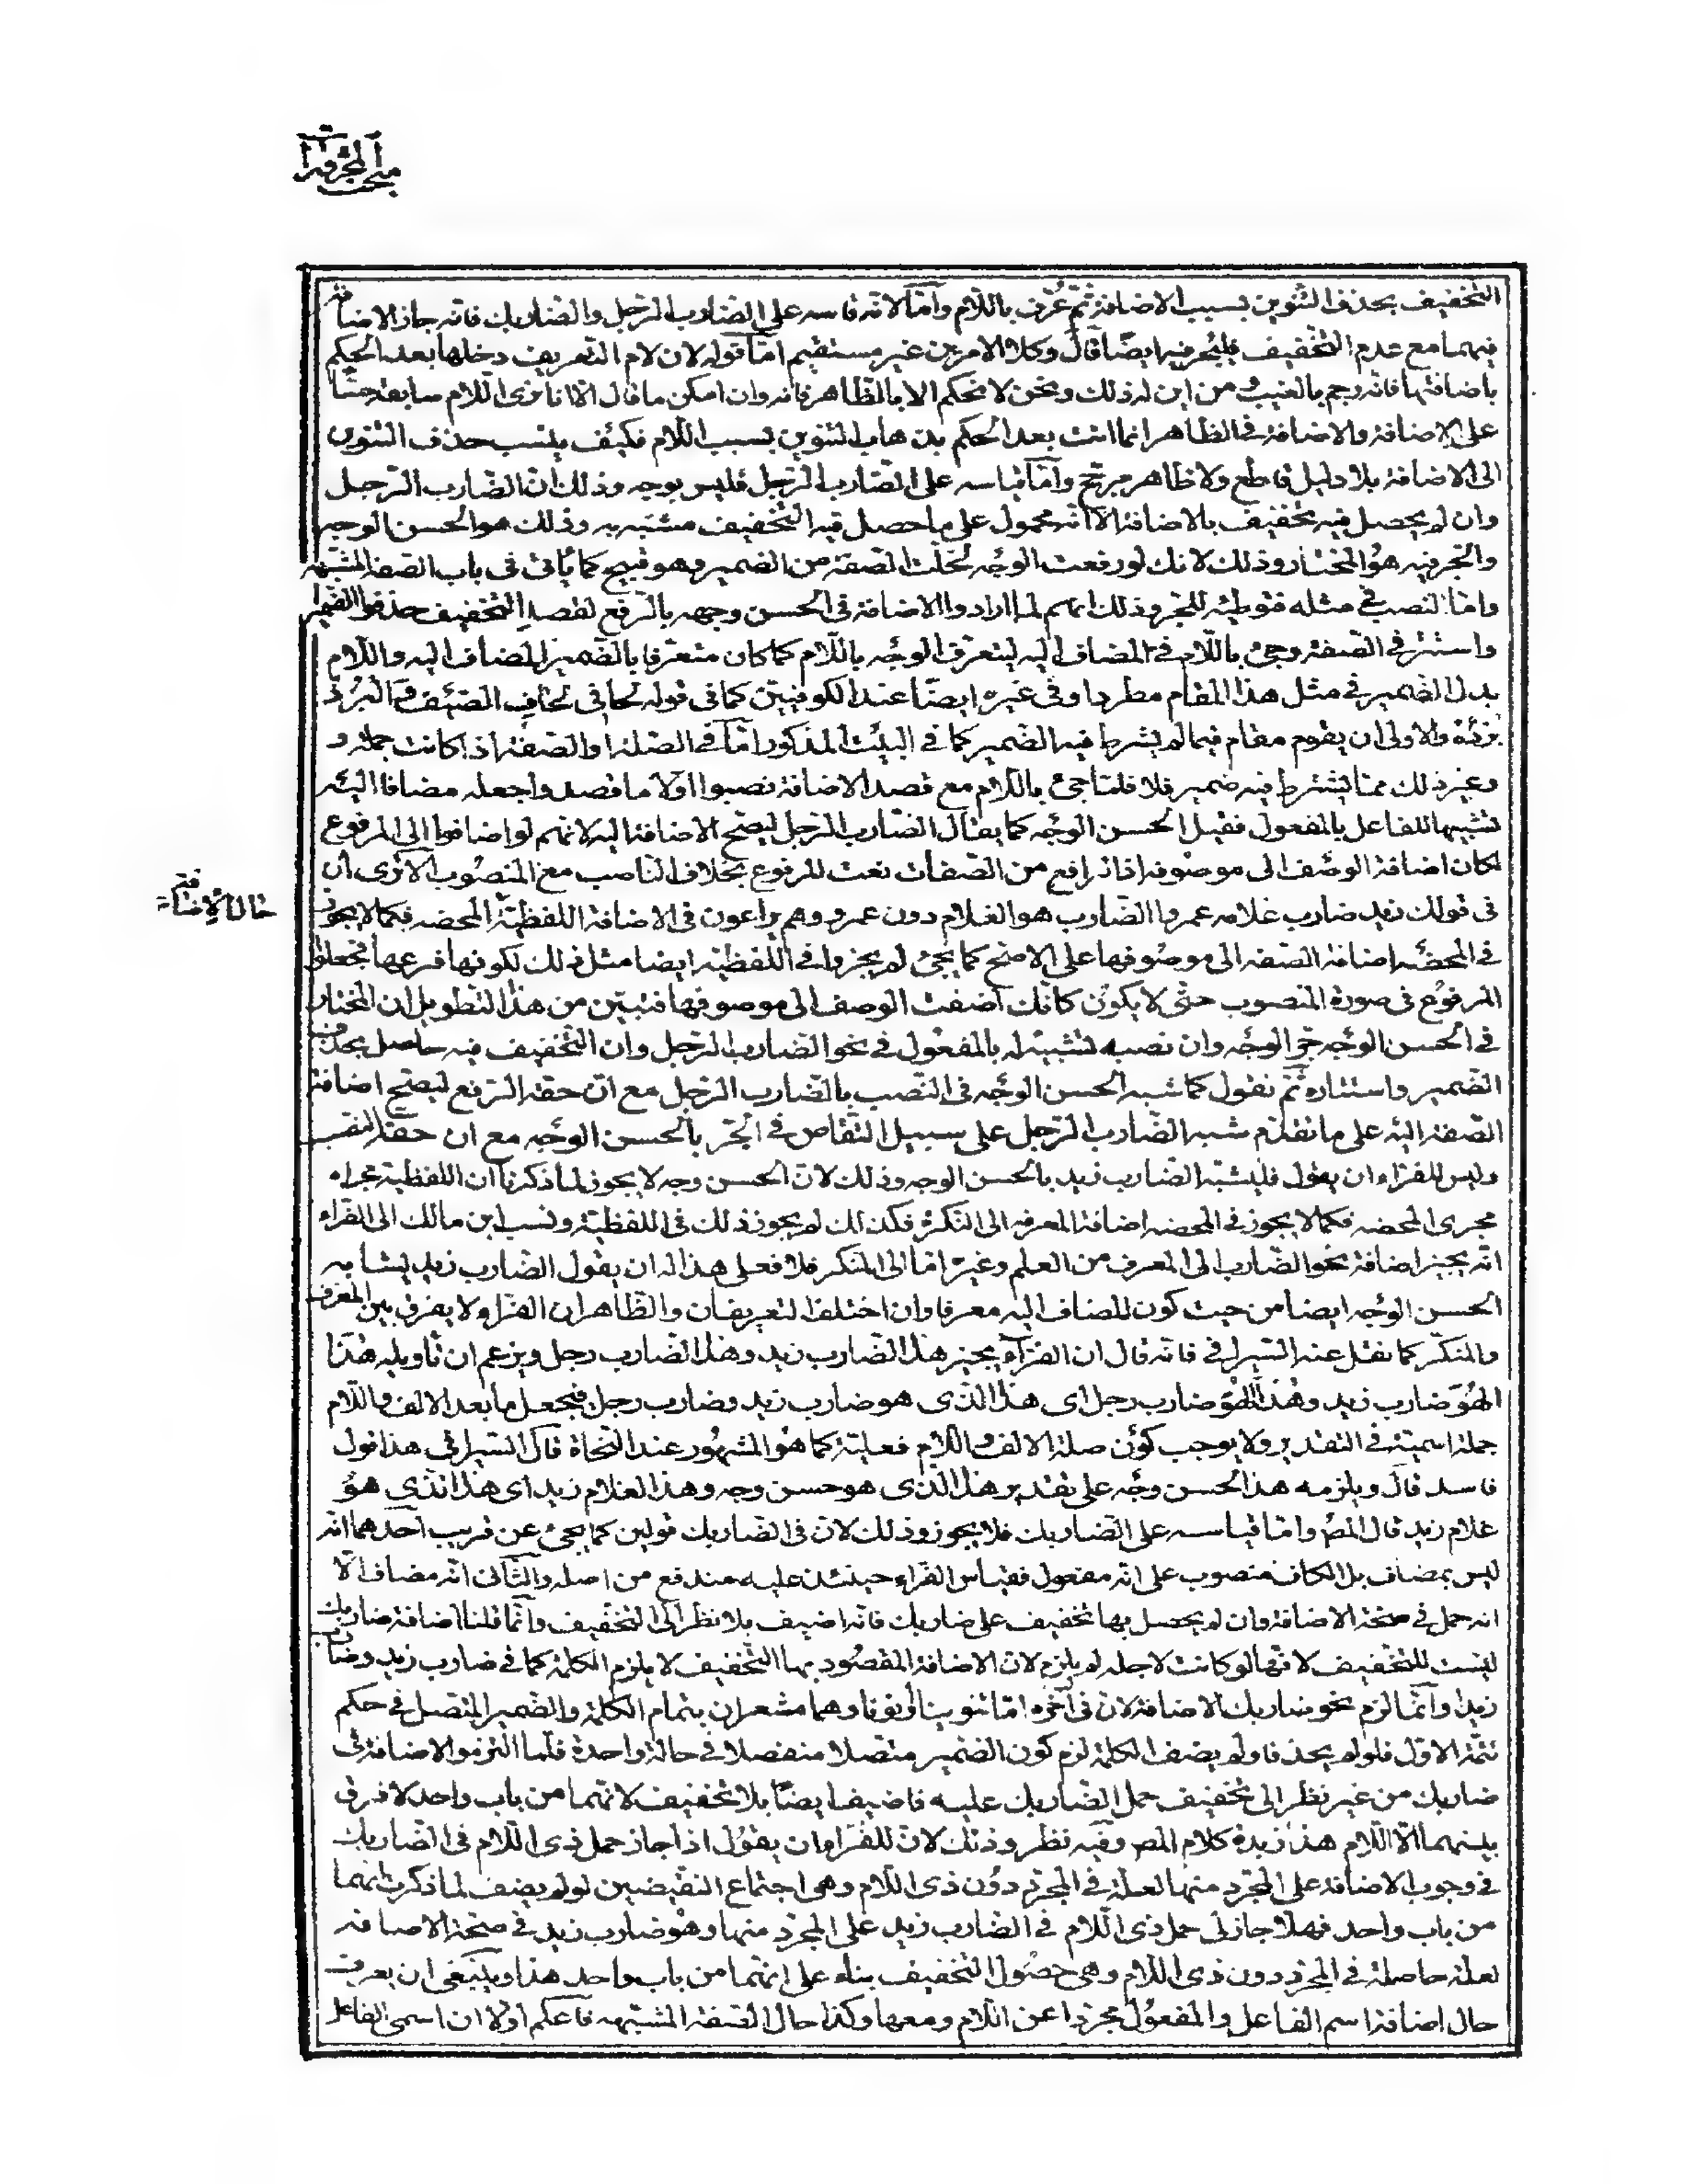 مبحث المجرورات
التخفيف بحذف التنوين بسبب الاضافة ثم عرف باللام واما لانه قاسه على الضارب الرجل والضاربك فانه جاز الاضافة
فيهما مع عدم التخفيف فليجز فيه ايضا قال وكلا الامرين غير مستقيم اما قوله لان لام التعريف دخلها بعد الحكم
باضافتها فانه رجم بالغيب ومن اين له ذلك ونحن لا نحكم الا بالظاهر فانه وان امكن ما قال الا انا نرى اللام سابقة حسا
على الاضافة والاضافة في الظاهر انما اتت بعد الحكم بذهاب التنوين بسبب اللام فكيف ينسب حذف التنوين
الى الاضافة بلا دليل قاطع ولا ظاهر مرجح واما قياسه على الضارب الرجل فليس بوجه وذلك ان الضارب الرجل
وان لم يحصل فيه تخفيف بالاضافة الا انه محمول على ما حصل فيه التخفيف مشبه به وذلك هو الحسن الوجه
والجر فيه هو المختار وذلك لانك لو رفعت الوجه لخلت الصفة من الضمير وهو قبيح كما يأتي في باب الصفة المشبهة
واما النصب في مثله فتوطئه للجر وذلك انهم لما ارادوا الاضافة في الحسن وجهه بالرفع لقصد التخفيف حذفوا الضمير
واستتر في الصفة وجئ باللام في المضاف اليه ليتعرف الوجه باللام كما كان متعرفا بالضمير المضاف اليه واللام
بدل الضمير في مثل هذا المقام مطردا وفي غيره ايضا عند الكوفيين كما في قوله لحافي لحاف الضيف والبرد
برده والاولى ان يقوم مقام فيما لم يشرط فيه الضمير كما في البيت المذكور اما في الصلة او الصفة اذا كانت جملة و
وغير ذلك مما يشترط فيه ضمير فلا فلما جئ باللام مع قصد الاضافة نصبوا اولا ما قصدوا جعله مضافا اليه
تشبيها للفاعل بالمفعول فقيل الحسن الوجه كما يقال الضارب الرجل ليصح الاضافة اليه لانهم لو اضافوا الى المرفوع
لكان اضافة الوصف الى موصوفه اذ الرافع من الصفات نعت للمرفوع بخلاف الناصب مع المنصوب الا ترى ان
حال الاضافة
في قولك زيد ضارب غلامه عمروا الضارب هو الغلام دون عمرو وهم يراعون في الاضافة اللفظية المحضه فكما لا يجوز
في المحضه اضافة الصفه الى موصوفها على الاصح كما يجئ لم يجزوا في اللفظيه ايضا مثل ذلك لكونها فرعها فجعلوا
المرفوع في صورة المنصوب حتى لا يكون كانك اضفت الوصف الى موصوفها فتبين من هذا التطويل ان المختار
في الحسن الوجه جر الوجه وان نصبه لتشبيه له بالمفعول في نحو الضارب الرجل وان التخفيف فيه حاصل بحذف
الضمير واستتاره ثم نقول كما شبه الحسن الوجه في النصب بالضارب الرجل مع ان حقه الرفع ليصح اضافة
الصفة اليه على ما تقدم شبه الضارب الرجل على سبيل التقاص في الجر بالحسن الوجه مع ان حقه النصب
وليس للفراء ان يقول فليشبه الضارب زيد بالحسن الوجه وذلك لان الحسن وجه لا يجوز لما ذكرنا ان اللفظية مجراه
مجرى المحضه فكما لا يجوز في المحضه اضافة المعرفه الى النكرة فكذلك لم يجوز ذلك في اللفظية ونسب ابن مالك الى الفراء
انه يجيز اضافة نحو الضارب الى المعرف من العلم وغيره اما الى المنكر فلا فعلى هذا له ان يقول الضارب زيد يشابه
الحسن الوجه ايضا من حيث كون المضاف اليه معرفا وان اختلف التعريفان والظاهر ان الفراء لا يفرق بين المعرف
والمنكر كما نقل عنه السيرافي فانه قال ان الفراء يجيز هذا الضارب زيد وهذا الضارب رجل ويزعم ان تأويله هذا
الهو ضارب زيد وهذا الهو ضارب رجل اى هذا الذى هو ضارب زيد وضارب رجل فيجعل ما بعد الالف واللام
جملة اسمية في التقدير ولا يوجب كون صلة الالف واللام فعلية كما هو المشهور عند النحاة قال السيرافي هذا قول
فاسد قال ويلزمه هذا الحسن وجه على تقدير هذا الذى هو حسن وجه وهذا الغلام زيد اى هذا الذى هو
غلام زيد قال المص واما قياسه على الضاربك فلا يجوز وذلك لان في الضاربك قولين كما يجئ عن قريب احدهما انه
ليس بمضاف بل الكاف منصوب على انه مفعول فقياس الفراء حينئذ عليه مندفع من اصله والثانى انه مضاف الا
انه حمل في صحة الاضافة وان لم يحصل بها تخفيف على ضاربك فانه اضيف بلا نظر الى التخفيف وانما قلنا اضافة ضاربك
ليست للتخفيف لانها لو كانت لاجله لم يلزم لان الاضافة المقصود بها التخفيف لا يلزم الكلمة كما في ضارب زيد وضارب
زيدا وانما لزم نحو ضاربك الاضافة لان في آخره اما تنوينا او نونا وهما مشعران بتمام الكلمة والضمير المتصل في حكم
تتمة الاول فلو لم يحذفا ولم يضف الكلمة لزم كون الضمير متصلا منفصلا في حالة واحدة فلما التزموا الاضافة في
ضاربك من غير نظر الى تخفيف حمل الضاربك عليه فاضيف ايضا بلا تخفيف لانهما من باب واحد لا فرق
بينهما الا اللام هذا زبدة كلام المص وفيه نظر وذلك لان للفراء ان يقول اذا جاز حمل ذى اللام في الضاربك
في وجوب الاضافة على المجرد منها لعلة في المجرد دون ذى اللام وهى اجتماع النقيضين لو لم يضف لما ذكرت انهما
من باب واحد فهلا جاز لى حمل ذى اللام في الضارب زيد على المجرد منها وهو ضارب زيد في صحة الاضافة
لعلة حاصلة في المجرد دون ذى اللام وهى حصول التخفيف بناء على انهما من باب واحد هذا وينبغى ان يعرف
حال اضافة اسم الفاعل والمفعول مجردا عن اللام ومعها وكذا حال الصفة المشبهه فاعلم اولا ان اسمى الفاعل